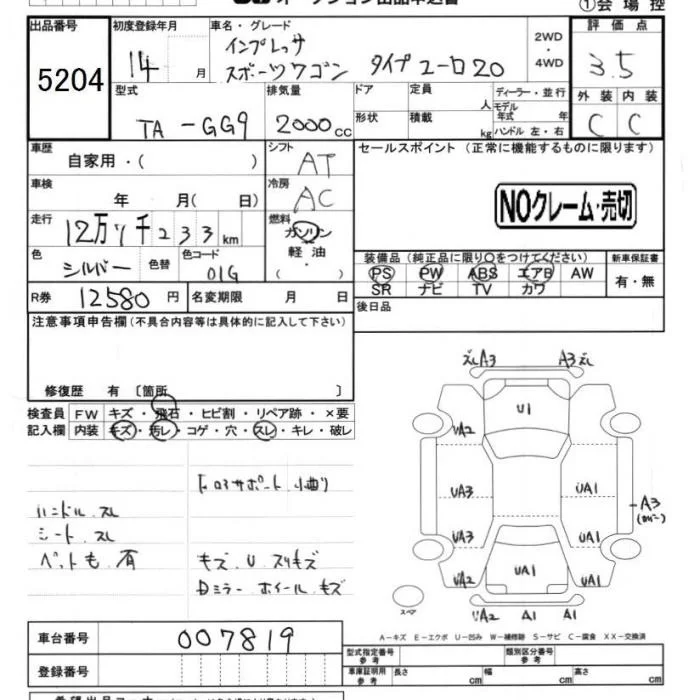 ①会場控
出品番号
5204
初度登録年月
14 月
車名・グレード
インプレッサ
スポーツワゴン タイプユーロ20
2WD
・
4WD
評価点
3.5
型式
TA-GG9
排気量
2000cc
ドア
形状
定員
人
積載
kg
ディーラー・並行
モデル
年式 年
ハンドル 左・右
外装 内装
C C
車歴
自家用・( )
シフト
AT
セールスポイント (正常に機能するものに限ります)
NOクレーム・売切
車検
年 月( 日)
冷房
AC
走行
12万 千233km
燃料
ガソリン
軽油
( )
色
シルバー
色替
色コード
01G
装備品 (純正品に限り○をつけてください)
PS PW ABS エアB AW
SR ナビ TV カワ
新車保証書
有・無
R券
12580 円
名変期限 月 日
後日品
注意事項申告欄(不具合内容等は具体的に記入して下さい)
修復歴 有 〔箇所 〕
検査員
記入欄
FW キズ・飛石・ヒビ割・リペア跡・×要
内装 キズ・汚レ・コゲ・穴・スレ・キレ・破レ
サポート 小曲り
ハンドル スレ
シート スレ
ペットも 有
キズ U スリキズ
Dミラー ホイール キズ
A3 A3
U1
UA2
UA3 UA1
A3
UA3 UA1
UA2 UA1 UA1
スペア
UA2 A1 A1
A-キズ E-エクボ U-凹み W-補修跡 S-サビ C-腐食 XX-交換済
車台番号
007819
登録番号
型式指定番号
参考
類別区分番号
参考
車庫証明用
参考
長さ cm 幅 cm 高さ cm